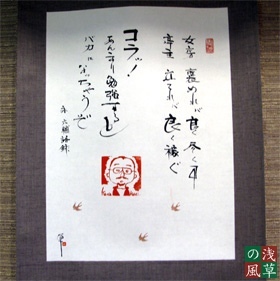 女房 褒めれば 良く尽くす
亭主 立てれば 良く稼ぐ
コラッ!
あんまり勉強すると
バカになっちゃうぞ
永六輔語録
浅草
の風